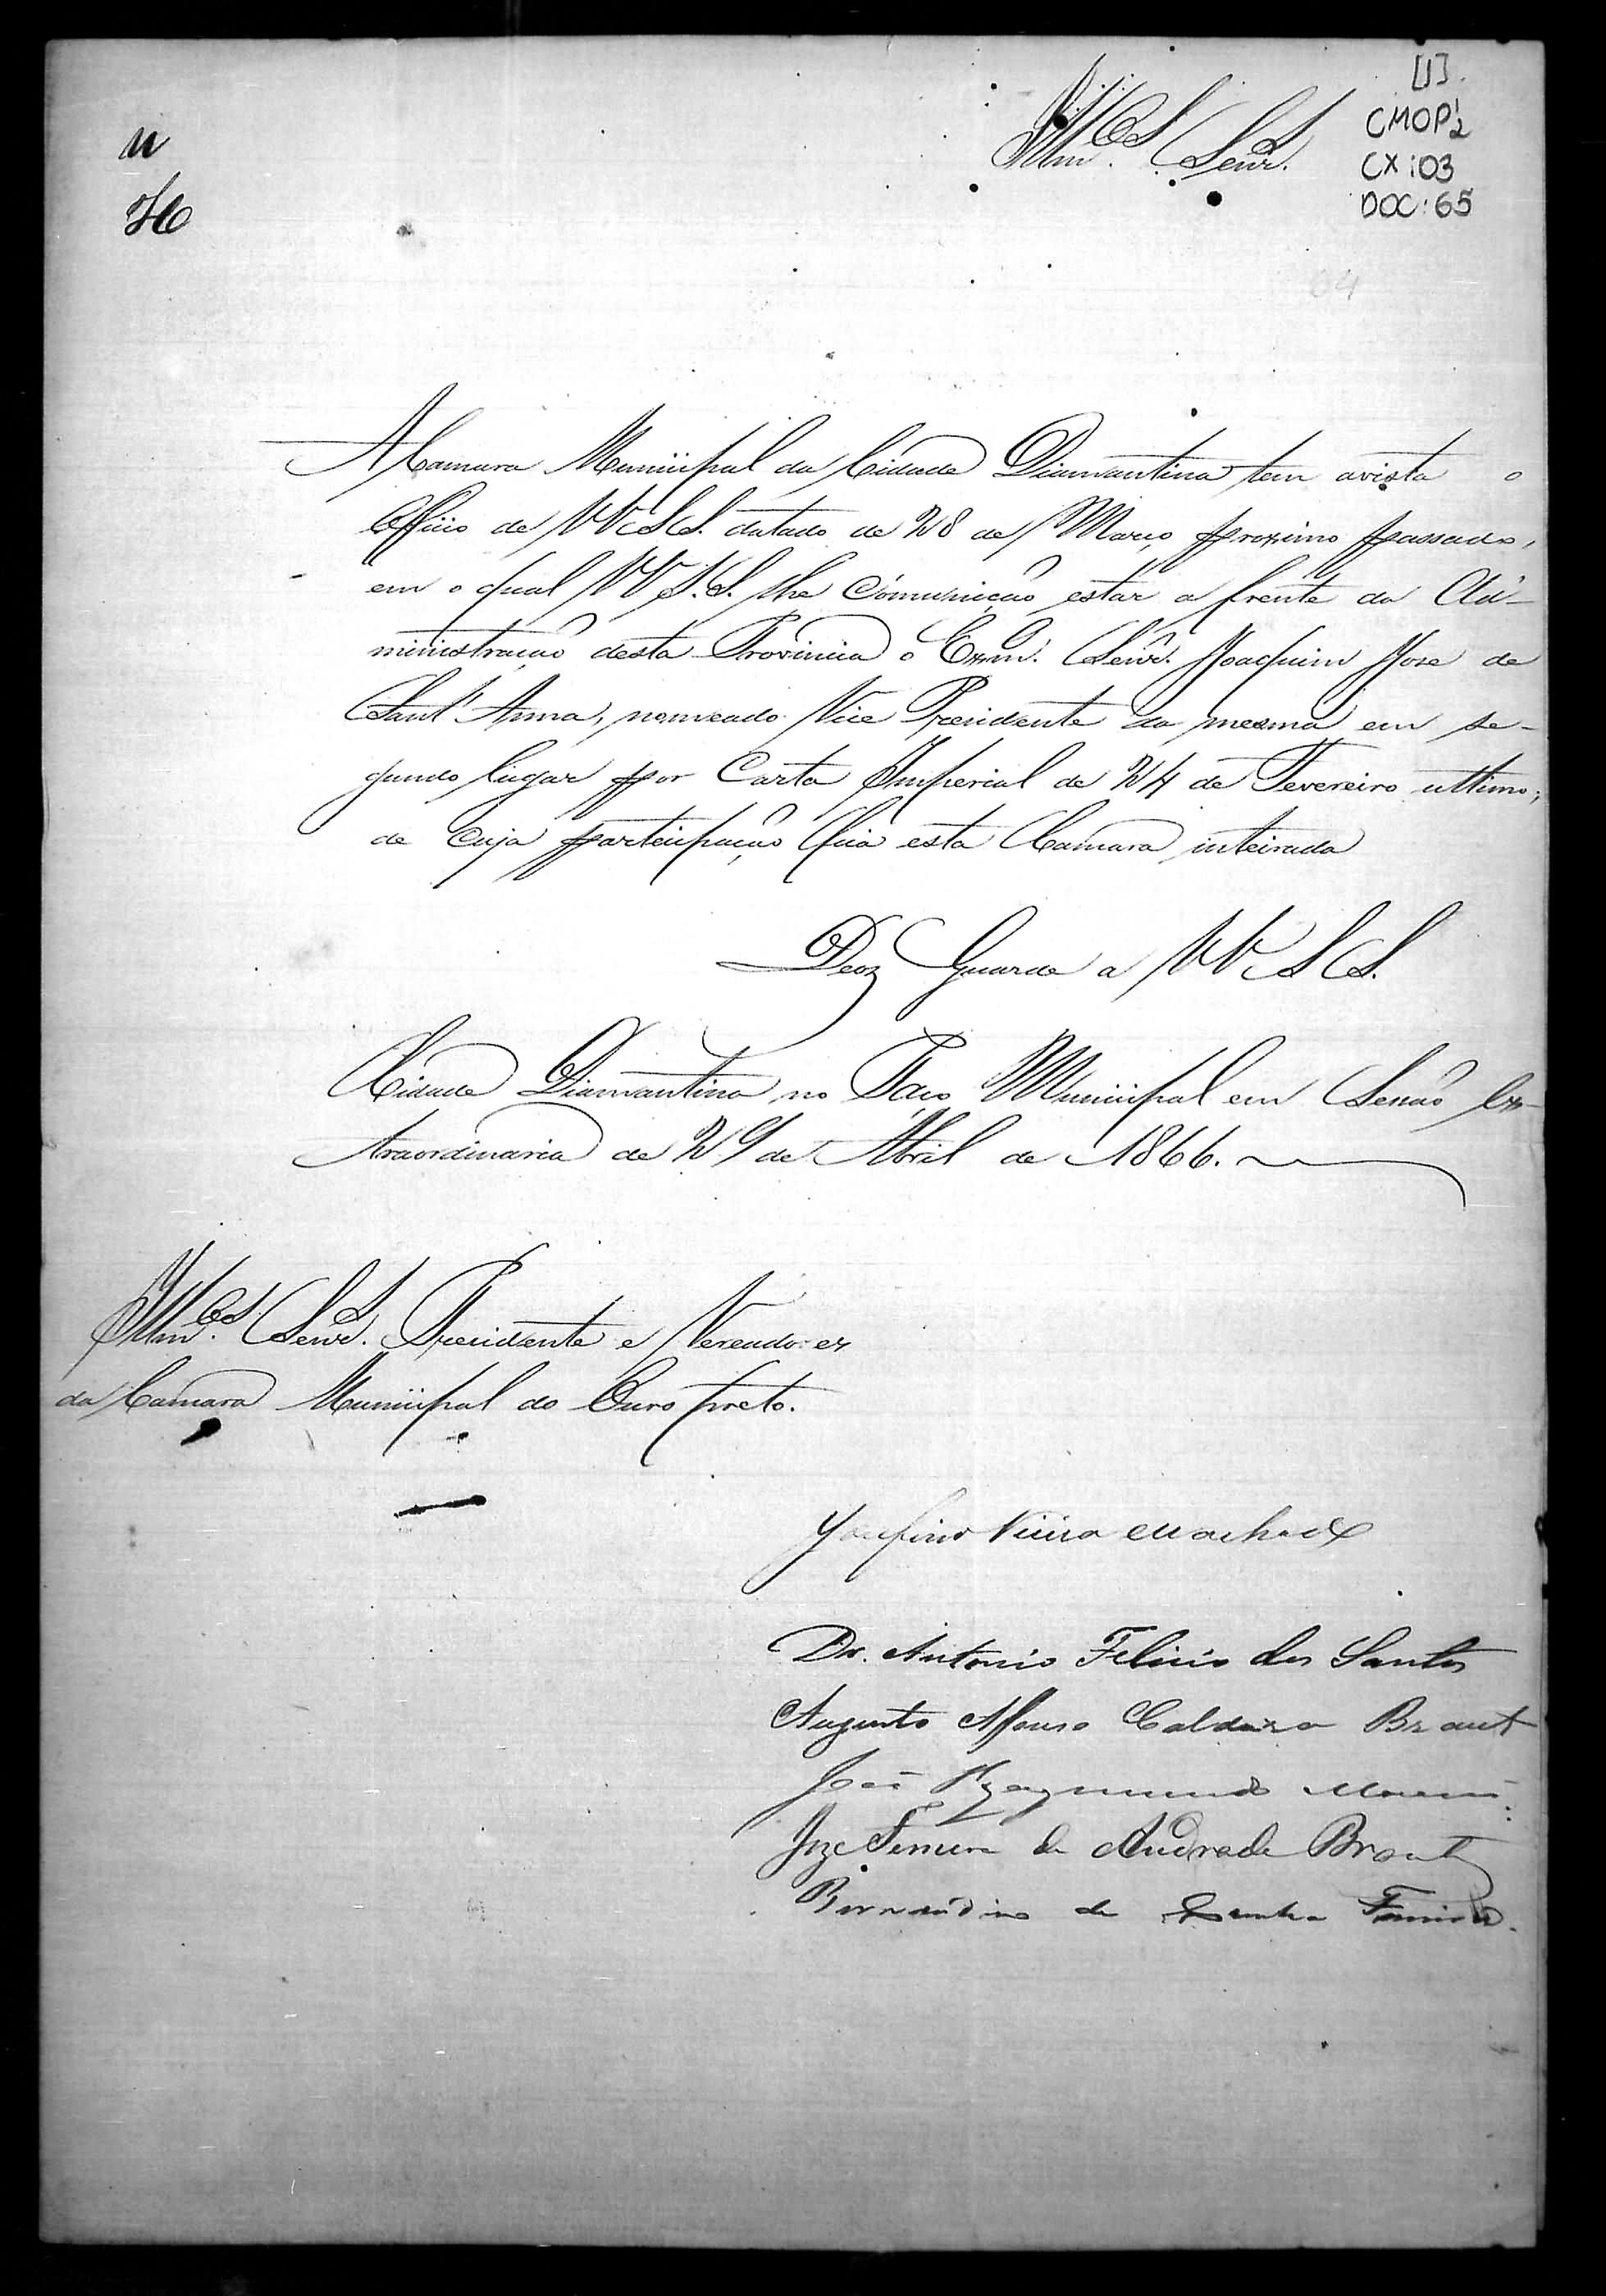 [1].
CMOP 2
CX:03
DOC:65
Illm.ᵒˢ Senr.ˢ
A Camara Municipal da Cidade Diamantina tem avista o
Officio de VVSS. datado de 28 de Março proximo passado,
em o qual VVS.S. lhe Comunicão estar a frente da Ad-
ministração desta Provincia o Exm. Senr. Joaquim Jose de
Sant'Anna, nomeado Vice Presidente da mesma em se-
gundo lugar por Carta Imperial de 24 de Fevereiro ultimo;
de cuja participação fica esta Camara inteirada
Deoz Guarde a VVSS.
Cidade Diamantina no Paço Municipal em Sessão Ex-
traordinaria de 29 de Abril de 1866.
Illm.ᵒˢ Senr.ˢ Presidente e Vereadores
da Camara Municipal do Ouro preto.
Vieira Machado
Dr. Antonio Felicio dos Santos
Augusto Affonso Caldeira Brant
João Raymundo
Joze de Andrade Brant
Bernardino da Cunha Ferreira.